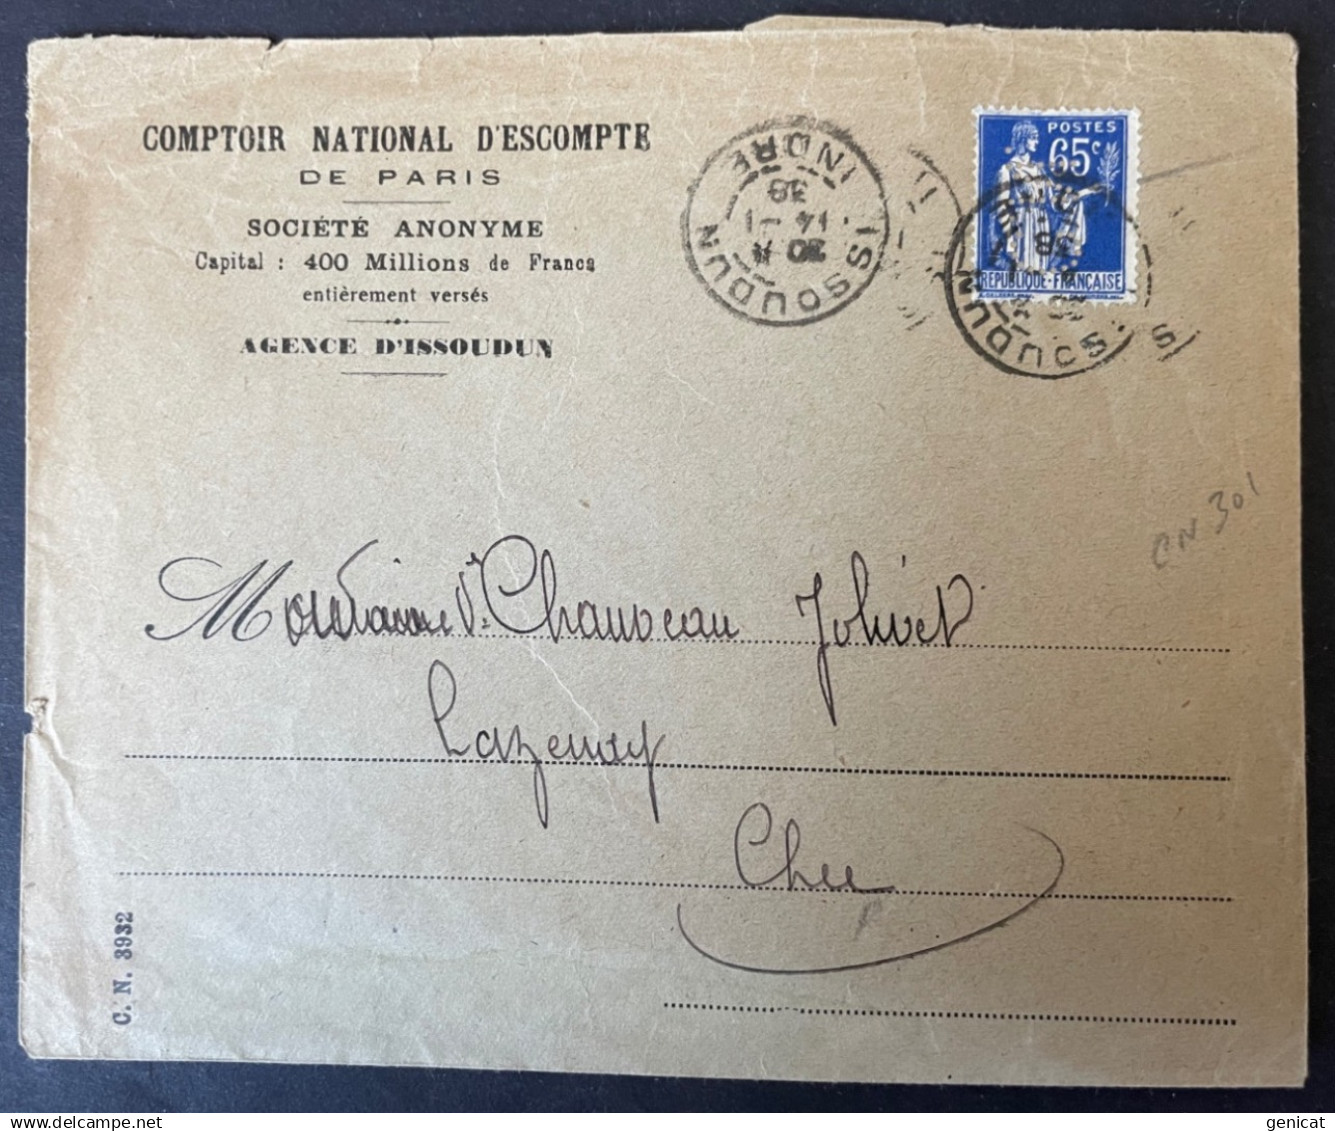 COMPTOIR NATIONAL D'ESCOMPTE
DE PARIS
SOCIÉTÉ ANONYME
Capital : 400 Millions de Francs
entièrement versés
AGENCE D'ISSOUDUN
ISSOUDUN
INDRE
14 - 1
38
POSTES
65c
REPUBLIQUE-FRANÇAISE
CN 301
Madame Vve Chauveau Jolivet
Lazenay
Cher
C. N. 3932
delcampe.net
genicat